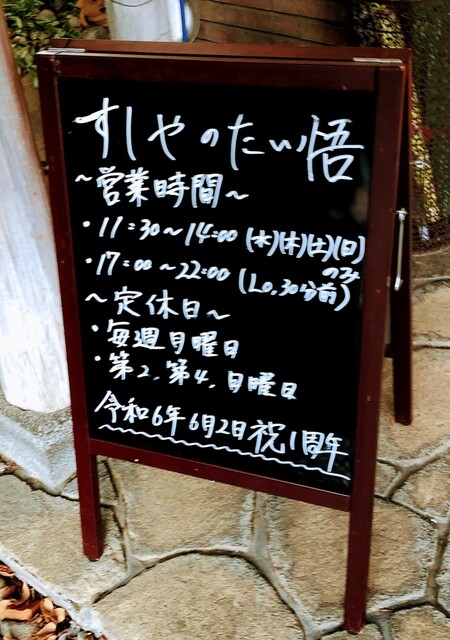 すしやのたい悟
~営業時間~
・11:30~14:00 (水)(木)(土)(日)
のみ
・17:00~22:00 (Lo.30分前)
~定休日~
・毎週月曜日
・第2.第4.日曜日
令和6年6月2日祝1周年